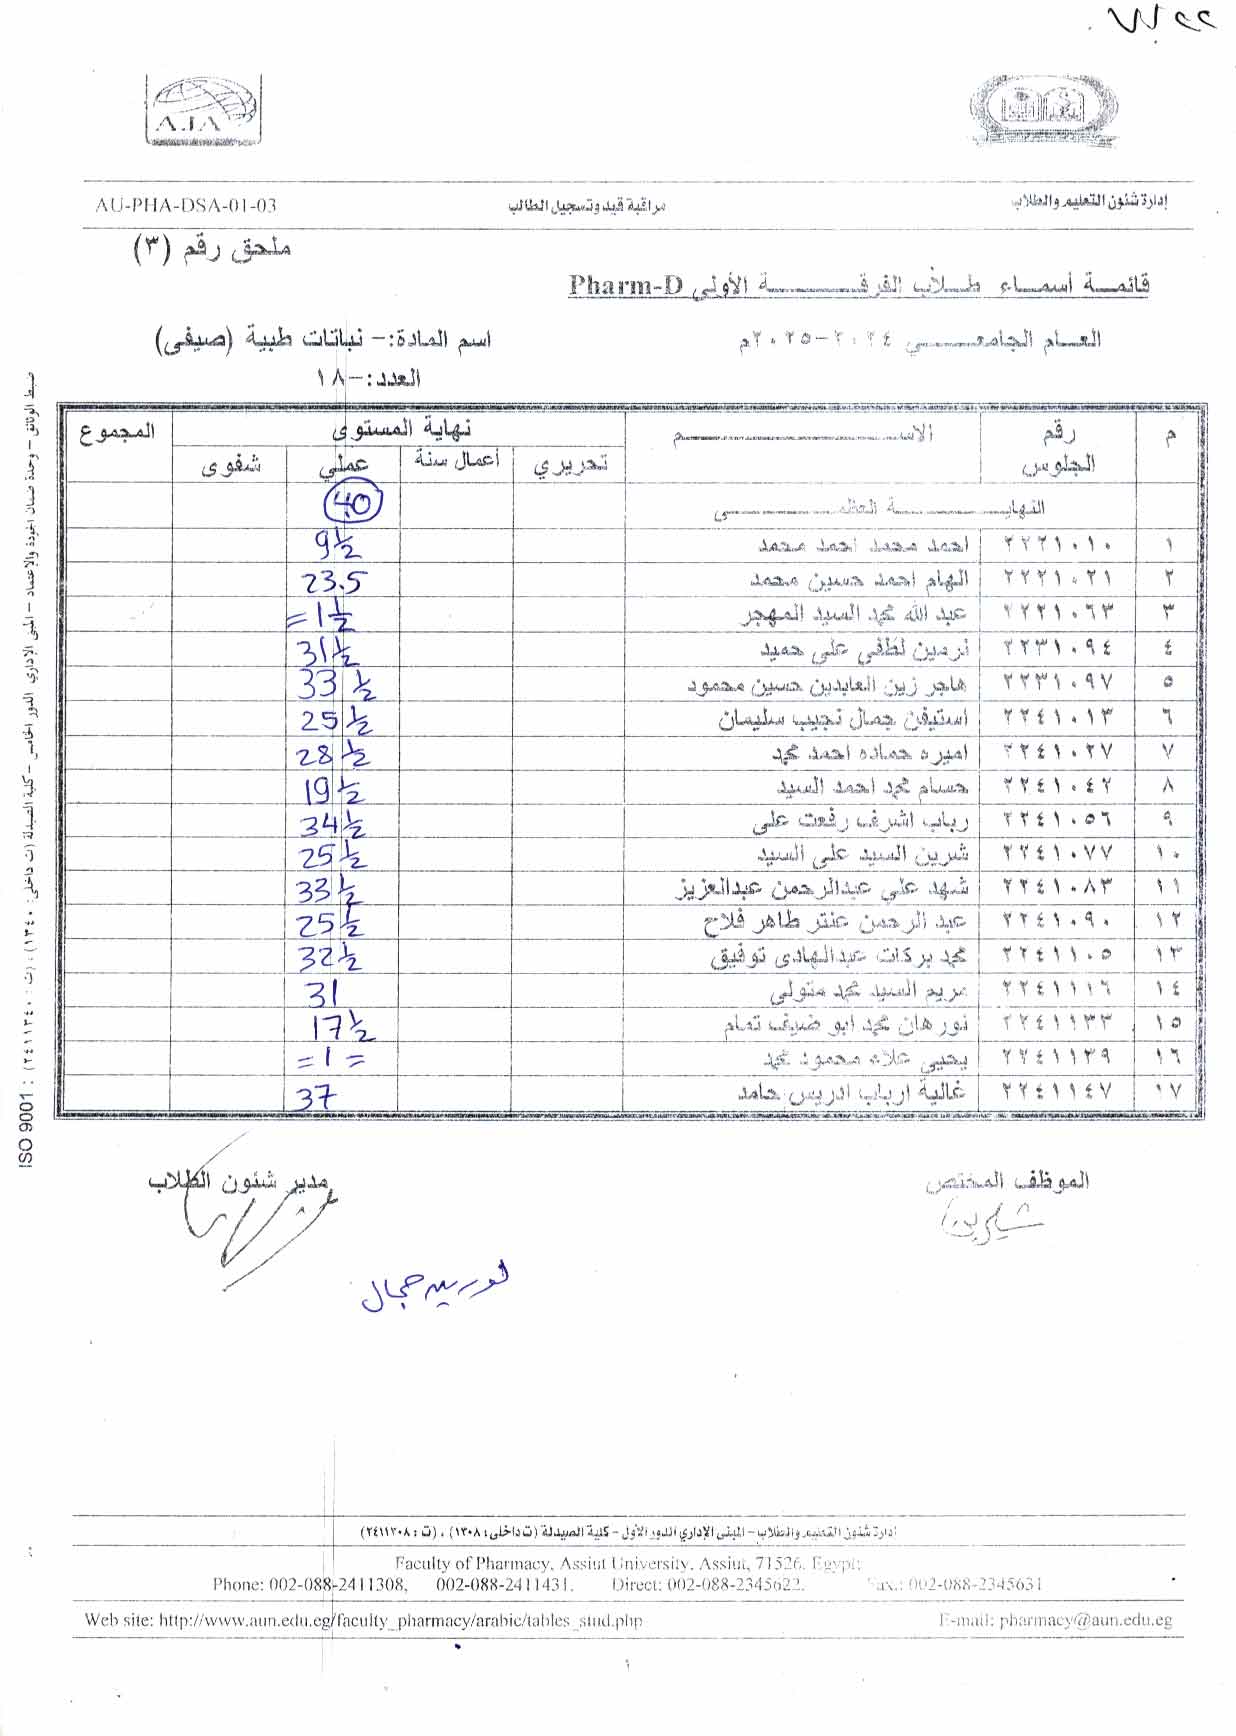 A.I.A
إدارة شئون التعليم والطلاب مراقبة قيد وتسجيل الطالب AU-PHA-DSA-01-03
ملحق رقم (٣)
قائمـة أسمـاء طـلاب الفرقـة الأولى Pharm-D
العـام الجامعـي ٢٠٢٤-٢٠٢٥م اسم المادة:- نباتات طبية (صيفى)
العدد:- ١٨
م رقم الجلوس الاسـم نهاية المستوى المجموع
تحريري أعمال سنة عملي شفوى
النهايـة العظمـى 40
١ ٢٢٢١٠١٠ احمد محمد احمد محمد 9½
٢ ٢٢٢١٠٢١ الهام احمد حسين محمد 23.5
٣ ٢٢٢١٠٦٣ عبد الله محمد السيد المهجر = 1½
٤ ٢٢٣١٠٩٤ نرمين لطفي على حميد 31½
٥ ٢٢٣١٠٩٧ هاجر زين العابدين حسين محمود 33½
٦ ٢٢٤١٠١٣ استيفن جمال نجيب سليمان 25½
٧ ٢٢٤١٠٢٧ اميره حماده احمد محمد 28½
٨ ٢٢٤١٠٤٢ حسام محمد احمد السيد 19½
٩ ٢٢٤١٠٥٦ رباب اشرف رفعت على 34½
١٠ ٢٢٤١٠٧٧ شرين السيد على السيد 25½
١١ ٢٢٤١٠٨٣ شهد علي عبدالرحمن عبدالعزيز 33½
١٢ ٢٢٤١٠٩٠ عبد الرحمن عنتر طاهر فلاح 25½
١٣ ٢٢٤١١٠٥ محمد بركات عبدالهادى توفيق 32½
١٤ ٢٢٤١١١٦ مريم السيد محمد متولى 31
١٥ ٢٢٤١١٣٣ نورهان محمد ابو ضيف تمام 17½
١٦ ٢٢٤١١٣٩ يحيي علاء محمود محمد = 1 =
١٧ ٢٢٤١١٤٧ غالية ارباب ادريس حامد 37
الموظف المختص مدير شئون الطلاب
شيرين
جمال
ضبط الوثائق - وحدة ضمان الجودة والاعتماد - المبنى الاداري الدور الخامس - كلية الصيدلة (ت داخلى: ١٣٤٠) ، (ت : ٢٤١١٣٤٠) : ISO 9001
إدارة شئون التعليم والطلاب - المبنى الإداري الدور الأول - كلية الصيدلة (ت داخلى: ١٣٠٨) ، (ت : ٢٤١١٣٠٨)
Faculty of Pharmacy, Assiut University, Assiut, 71526, Egypt:
Phone: 002-088-2411308, 002-088-2411431. Direct: 002-088-2345622. Fax.: 002-088-2345631
Web site: http://www.aun.edu.eg/faculty_pharmacy/arabic/tables_stud.php E-mail: pharmacy@aun.edu.eg
١